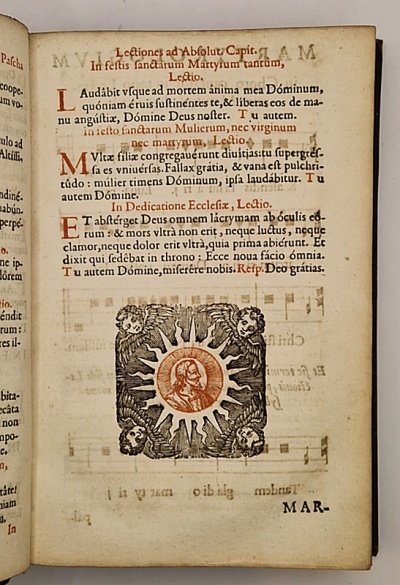 Lectiones ad Absolut. Capit.
In festis sanctarum Martyrum tantùm,
Lectio.
LAudábit vsque ad mortem ánima mea Dóminum,
quóniam éruis sustinéntes te, & líberas eos de ma-
nu angústiæ, Dómine Deus noster. Tu autem.
In festo sanctarum Mulierum, nec virginum
nec martyrum, Lectio.
MVltæ fíliæ congregavérunt divítias: tu supergrés-
sa es vniuérsas. Fallax grátia, & vana est pulchri-
túdo: múlier timens Dóminum, ipsa laudábitur. Tu
autem Dómine.
In Dedicatione Ecclesiæ, Lectio.
ET abstérget Deus omnem lácrymam ab óculis eó-
rum: & mors vltrà non erit, neque luctus, neque
clamor, neque dolor erit vltrà, quia prima abiérunt. Et
dixit qui sedébat in throno: Ecce noua fácio ómnia.
Tu autem Dómine, miserére nobis. Resp. Deo grátias.
MAR-
Pascha
coope-
um vo-
culo ad
Altíssi,
ne ip-
non
In